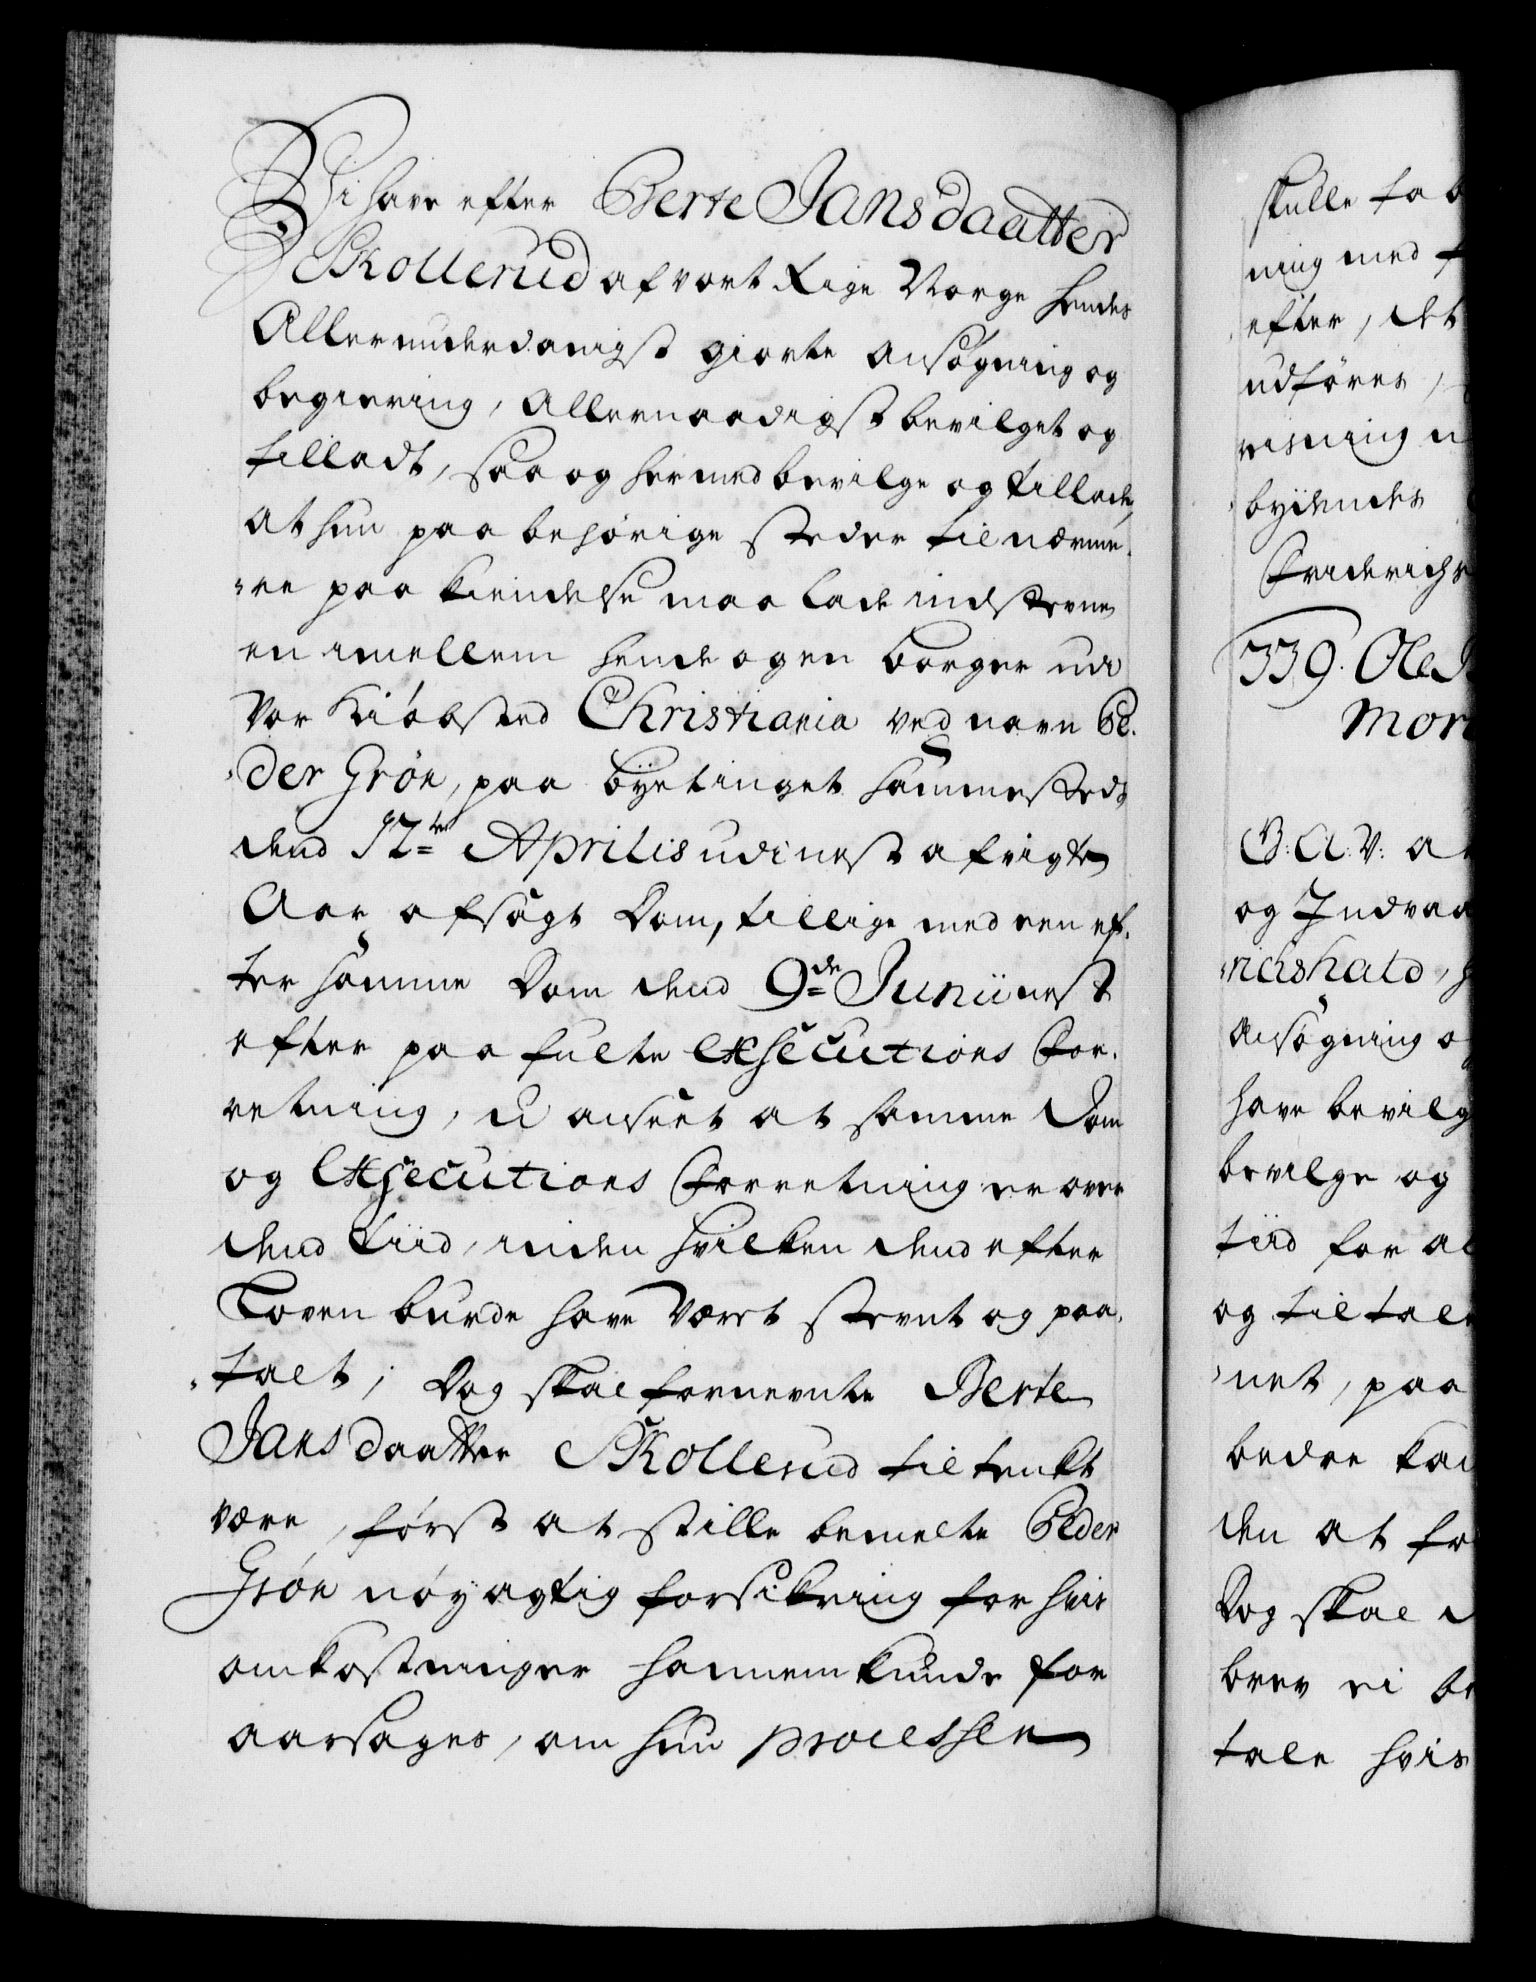 Vi have efter Berte Jansdaatter
Skollerud af vort Rige Norge hendes
Allerunderdanigst giorte Ansøgning og
begiering, Allernaadigst bevilget og
tilladt, saa og hermed bevilge og tillade,
at hun paa behørige steder til nærme-
-re paakiendelse maa lade indstevne
en imellem hende og en borger udi
Vor Kiøbsted Christiania ved navn Pe-
-der Grøn, paa byetinget sammesteds
dend 12te Aprilis udi nest afvigte
Aar afsagt Dom, tillige med een ef-
ter samme Dom dend 9de Junii nest
efter paafulte Executions For-
retning, uanseet at samme Dom
og Executions Forretning er over
dend tiid, inden hvilken dend efter
Loven burde have været stevnt og paa-
-talt; Dog skal fornevnte Berte
Jansdaatter Skollerud tiltenkt
være, først at stille bemelte Peder
Grøn nøyagtig forsikring for hvis
omkostninger hannem kunde for
aarsages, om hun processen
skulle tab
ning med f
efter, det
udføres,
viisning u
bydendes
Friderichs
339. Ole
Mor
G: A: V: at
og Indvaa
richshald, h
Ansøgning o
have bevilg
bevilge og
tiid for al
og tiltale
-net, paa
bedre kan
den at fo
Dog skal d
brev ei be
tale hvis